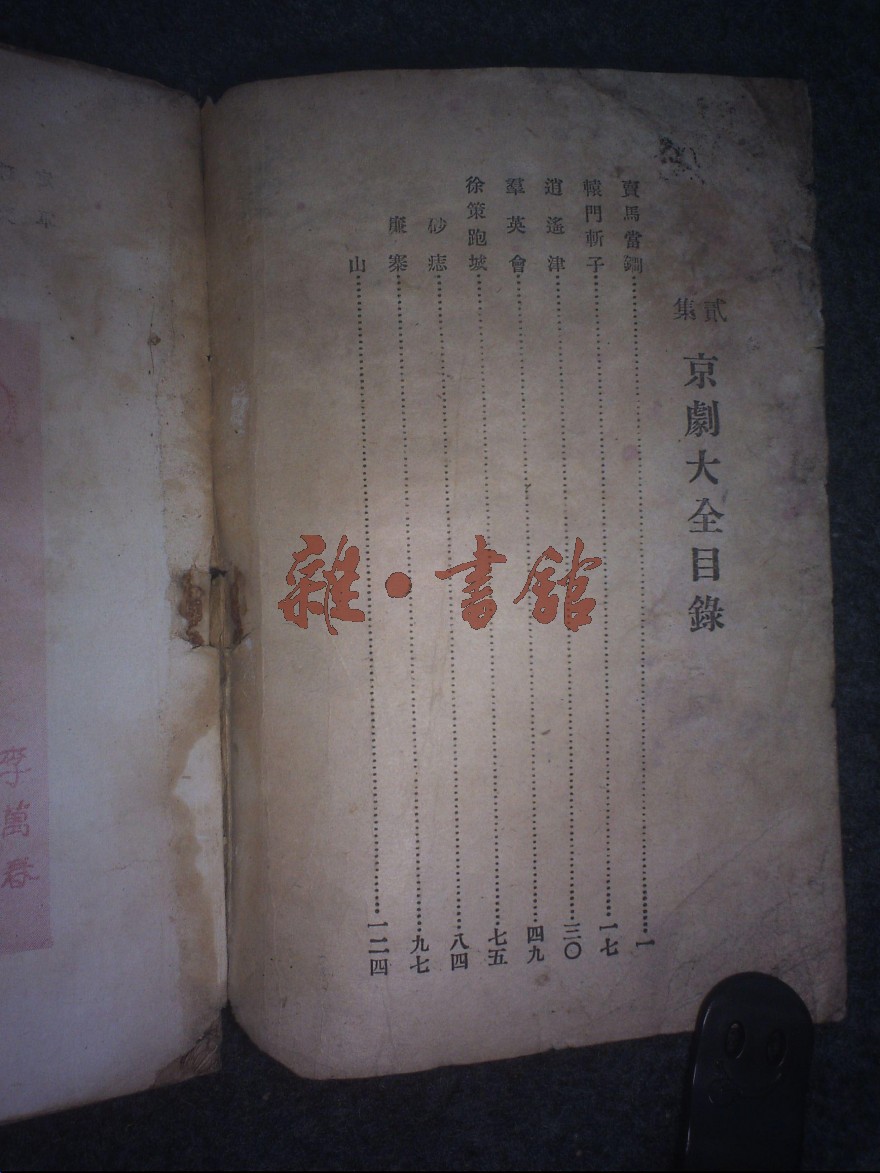 貳集
京劇大全目錄
賣馬當鐧……一
轅門斬子……一七
逍遙津……三〇
羣英會……四九
徐策跑城……七五
砂痣……八四
廉寨……九七
山……一二四
雜·書館
李萬春